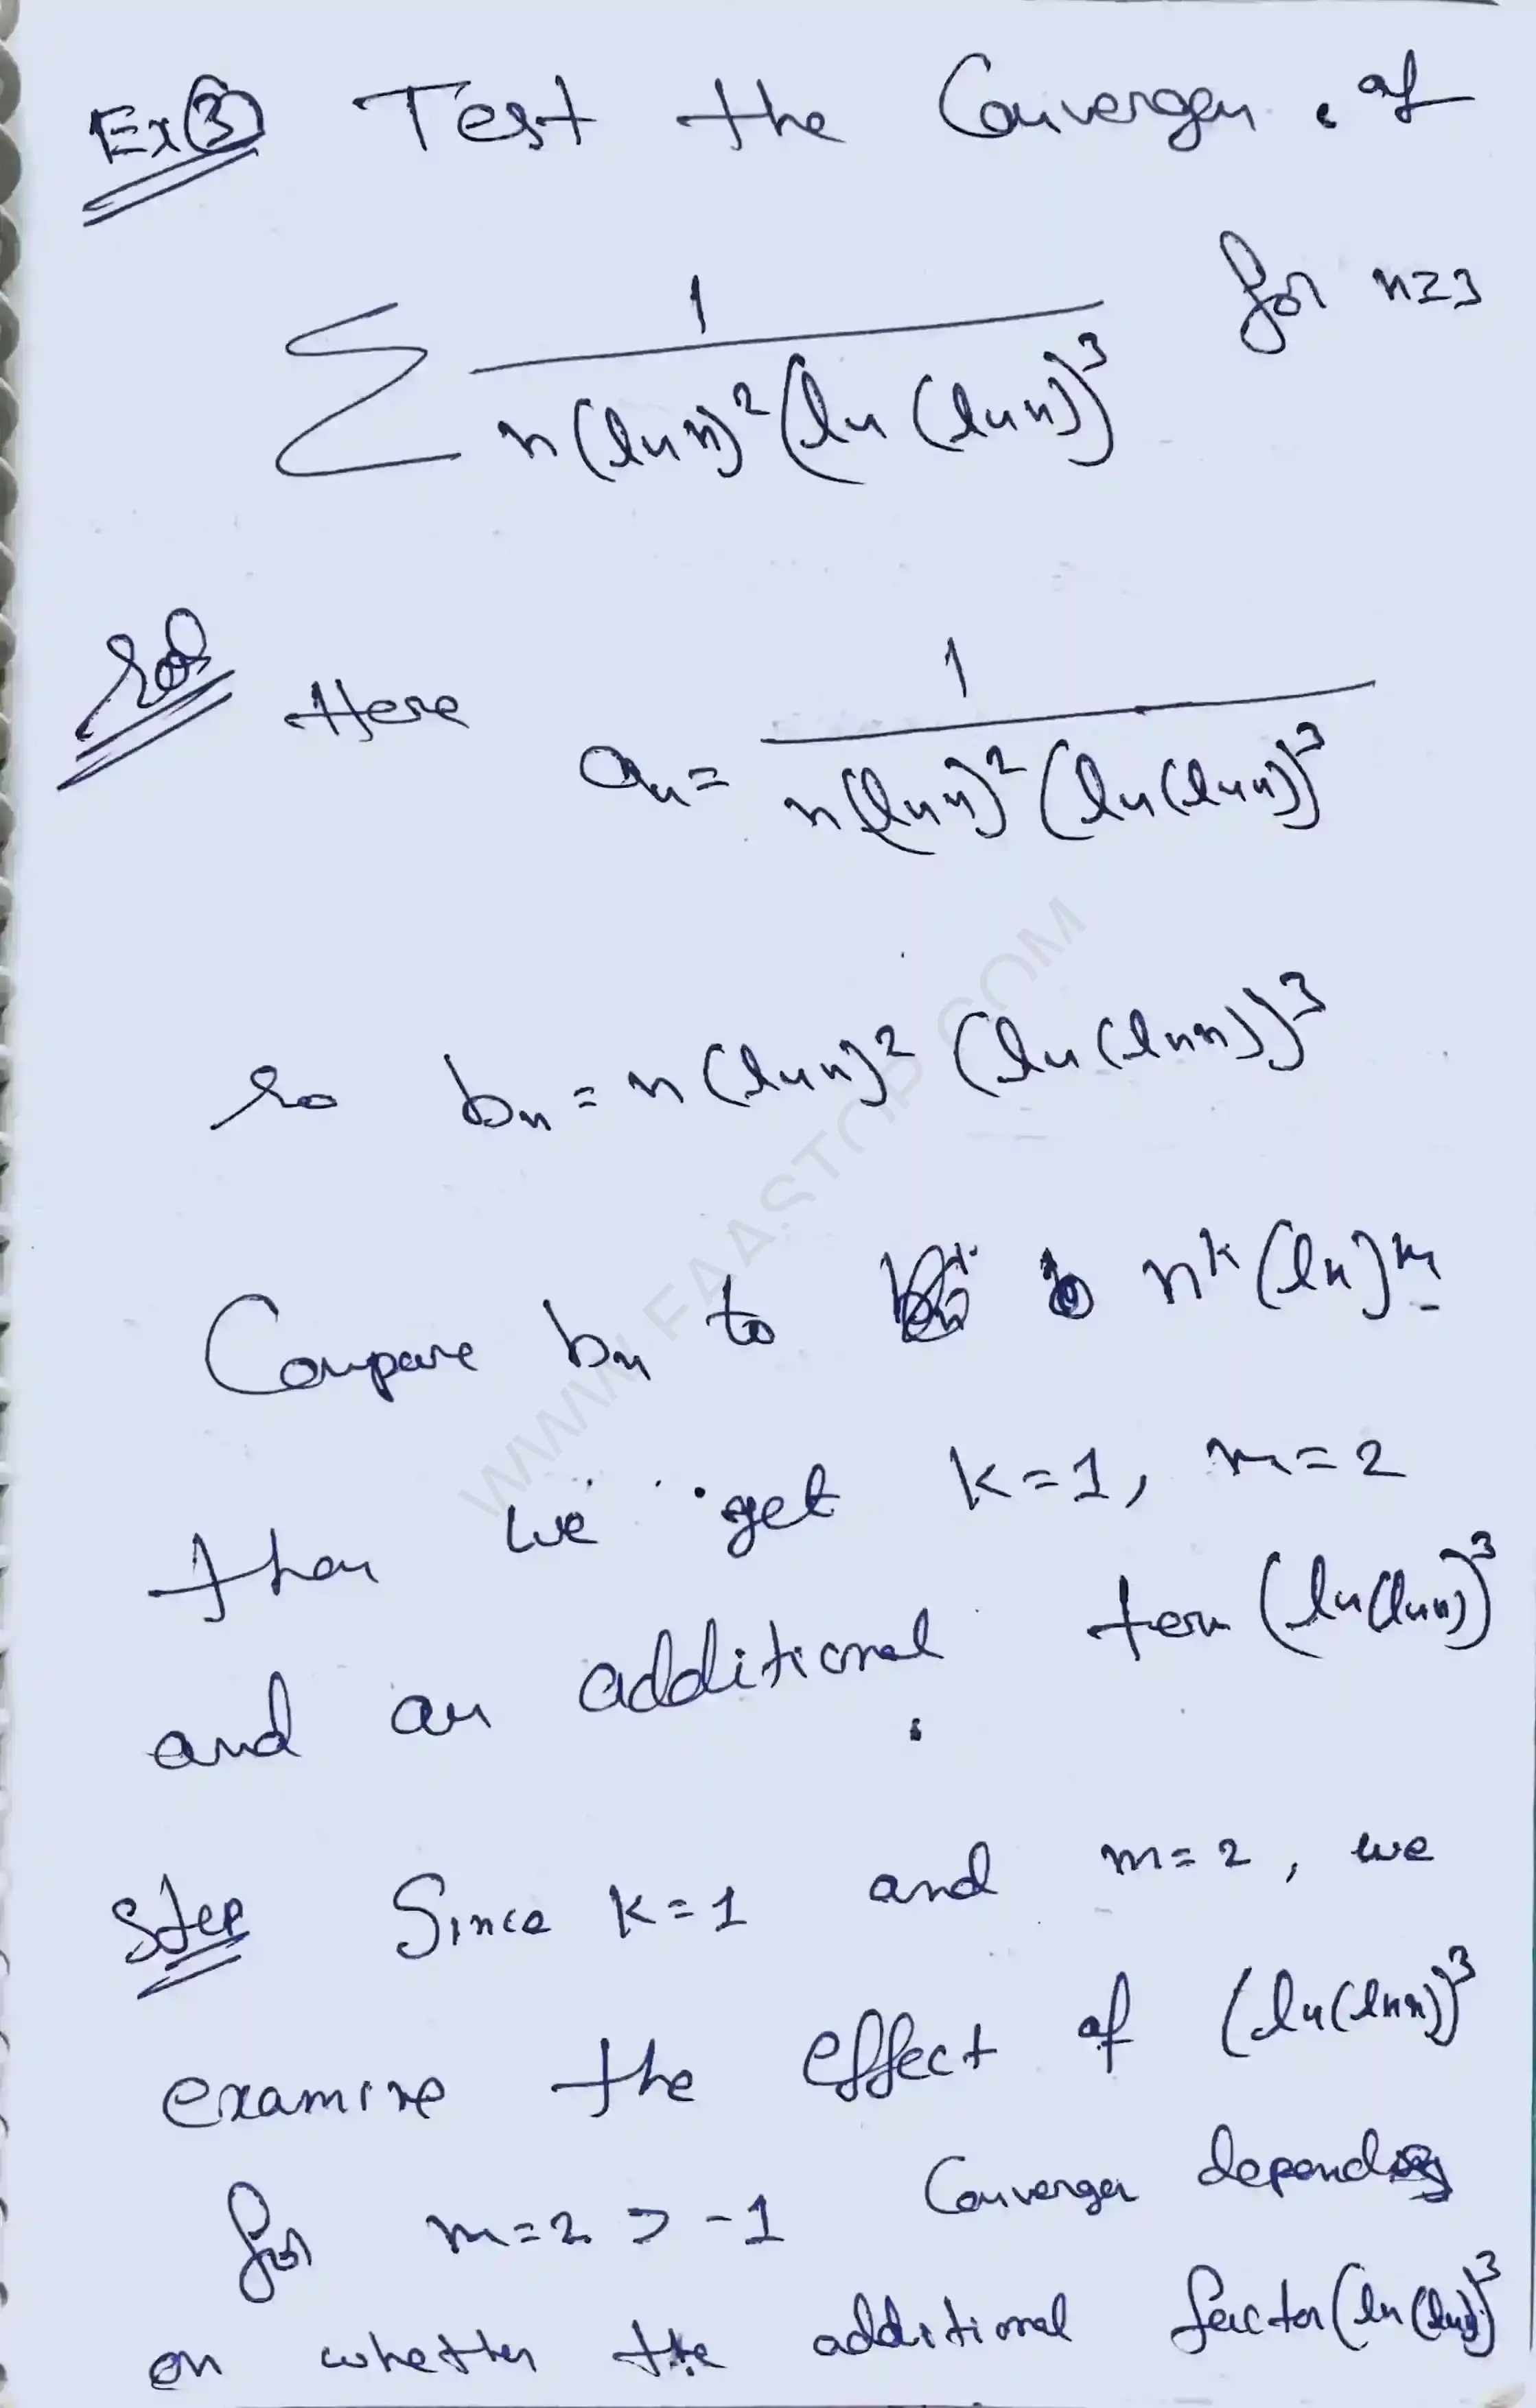 Ex③ Test the Convergen. of
∑ 1/(n(ln n)²(ln(ln n))³) for n≥3
Sol Here aₙ = 1/(n(ln n)²(ln(ln n))³)
So bₙ = n(ln n)²(ln(ln n))³
Compare bₙ to nᵏ(ln)ᵐ
then we get k=1, m=2
and an additional term (ln(ln n))³
Step Since k=1 and m=2, we
examine the effect of (ln(ln n))³
for m=2 > -1 Converges depends
on whether the additional factor (ln(ln n))³
WWW.FAASTOP.COM